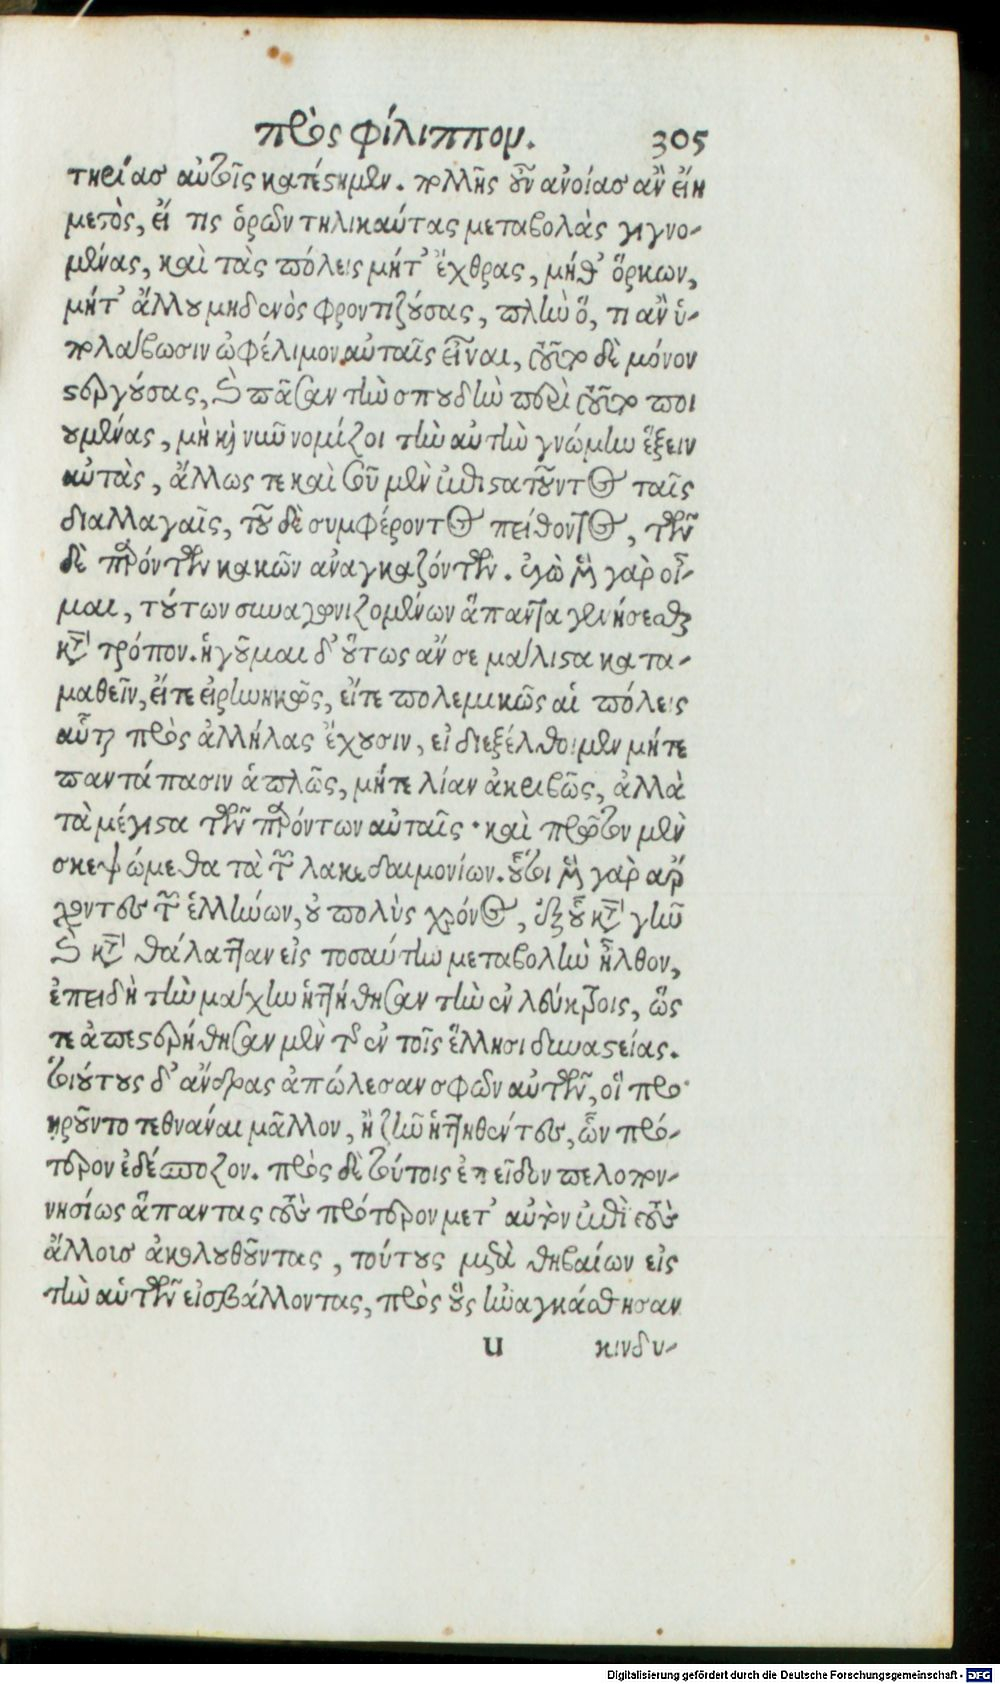 πρὸς φίλιππον. 305
τηρίας αὐτοῖς κατέστημεν. πολλῆς οὖν ἀνοίας ἂν εἴη
μεστὸς, εἴ τις ὁρῶν τηλικαύτας μεταβολὰς γιγνο-
μένας, καὶ τὰς πόλεις μήτ' ἔχθρας, μήθ' ὅρκων,
μήτ' ἄλλου μηδενὸς φροντιζούσας, πλὴν ὅ, τι ἂν ὑ-
πολάβωσιν ὠφέλιμον αὐταῖς εἶναι, τοῦτο δὲ μόνον
στεργούσας, καὶ πᾶσαν τὴν σπουδὴν περὶ τοῦτο ποι
ουμένας, μὴ καὶ νῦν νομίζοι τὴν αὐτὴν γνώμην ἕξειν
αὐτὰς, ἄλλως τε καὶ σοῦ μὲν ἐπιστατοῦντος ταῖς
διαλλαγαῖς, τοῦ δὲ συμφέροντος πείθοντος, τῶν
δὲ παρόντων κακῶν ἀναγκαζόντων. ἐγὼ μὲν γὰρ οἶ-
μαι, τούτων συναγωνιζομένων ἅπαντα γενήσεσθαι
κατὰ τρόπον. ἡγοῦμαι δ' οὕτως ἄν σε μάλιστα κατα-
μαθεῖν, εἴτε εἰρηνικῶς, εἴτε πολεμικῶς αἱ πόλεις
αὗται πρὸς ἀλλήλας ἔχουσιν, εἰ διεξέλθοιμεν μήτε
παντάπασιν ἁπλῶς, μήτε λίαν ἀκριβῶς, ἀλλὰ
τὰ μέγιστα τῶν παρόντων αὐταῖς· καὶ πρῶτον μὲν
σκεψώμεθα τὰ τῶν λακεδαιμονίων. οὗτοι μὲν γὰρ ἄρ
χοντες τῶν ἑλλήνων, οὐ πολὺς χρόνος, ἐξ οὗ κατὰ γῆν
καὶ κατὰ θάλατταν εἰς τοσαύτην μεταβολὴν ἦλθον,
ἐπειδὴ τὴν μάχην ἡττήθησαν τὴν ἐν λεύκτροις, ὥς
τε ἀπεστερήθησαν μὲν τῆς ἐν τοῖς ἕλλησι δυναστείας.
τοιούτους δ' ἄνδρας ἀπώλεσαν σφῶν αὐτῶν, οἳ προ
ῃροῦντο τεθνάναι μᾶλλον, ἢ ζῆν ἡττηθέντες, ὧν πρό-
τερον ἐδέσποζον. πρὸς δὲ τούτοις ἐπεῖδον πελοπον-
νησίους ἅπαντας τοὺς πρότερον μετ' αὐτῶν ἐπὶ τοὺς
ἄλλους ἀκολουθοῦντας, τούτους μετὰ θηβαίων εἰς
τὴν αὑτῶν εἰσβάλλοντας, πρὸς οὓς ἠναγκάσθησαν
u κινδυ-
Digitalisierung gefördert durch die Deutsche Forschungsgemeinschaft - DFG